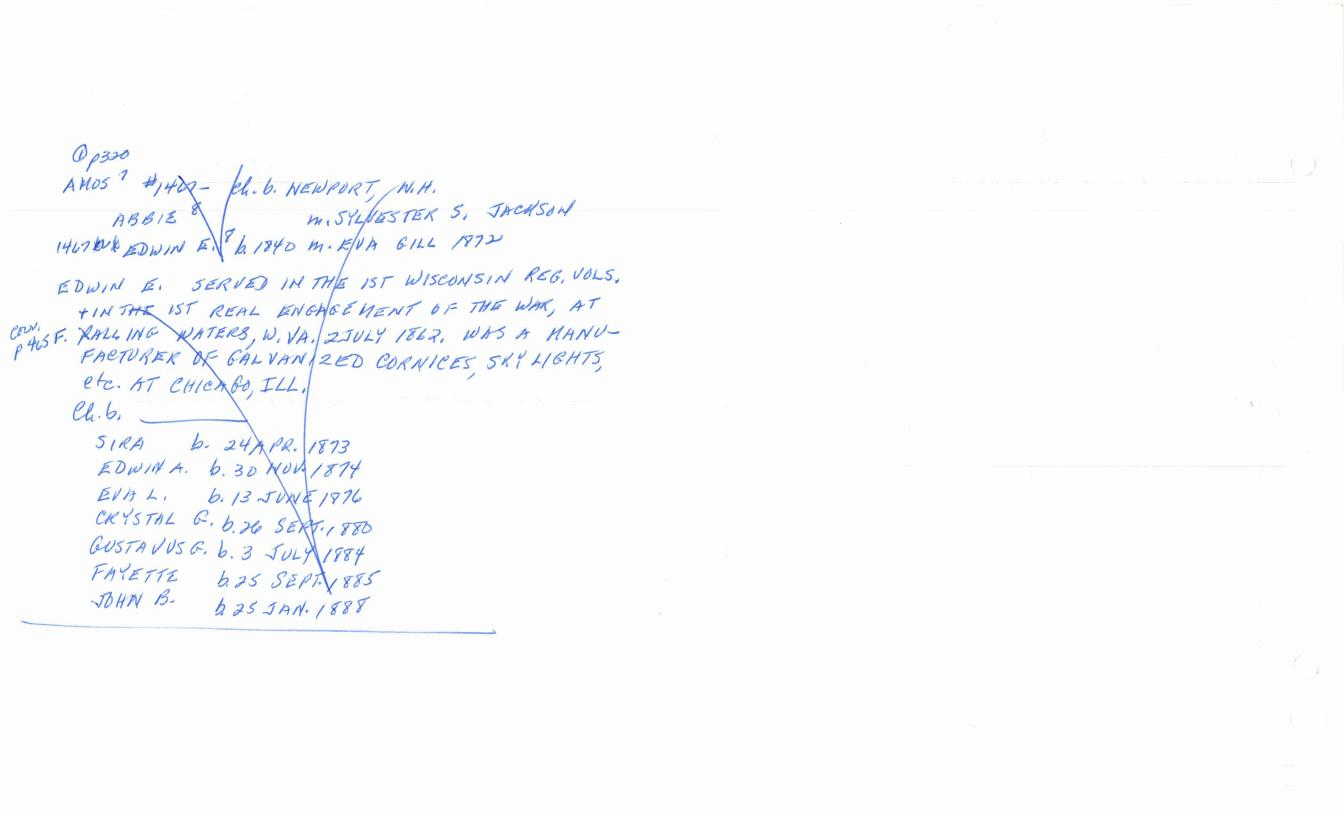 ① p320
AMOS 7 #1467- Ch. b. NEWPORT, N.H.
ABBIE 8 m. SYLVESTER S. JACKSON
1467 EDWIN E. 8 b. 1840 m. EVA GILL 1872
EDWIN E. SERVED IN THE 1ST WISCONSIN REG. VOLS.
+ IN THE 1ST REAL ENGAGEMENT OF THE WAR, AT
CORR. p 465 F. FALLING WATERS, W. VA. 2 JULY 1862. WAS A MANU-
FACTURER OF GALVANIZED CORNICES, SKY LIGHTS,
etc. AT CHICAGO, ILL.
Ch. b.
SIRA b. 24 APR. 1873
EDWIN A. b. 30 NOV. 1874
EVA L. b. 13 JUNE 1876
CRYSTAL G. b. 26 SEPT. 1880
GUSTAVUS G. b. 3 JULY 1884
FAYETTE b. 25 SEPT. 1885
JOHN B. b. 25 JAN. 1888